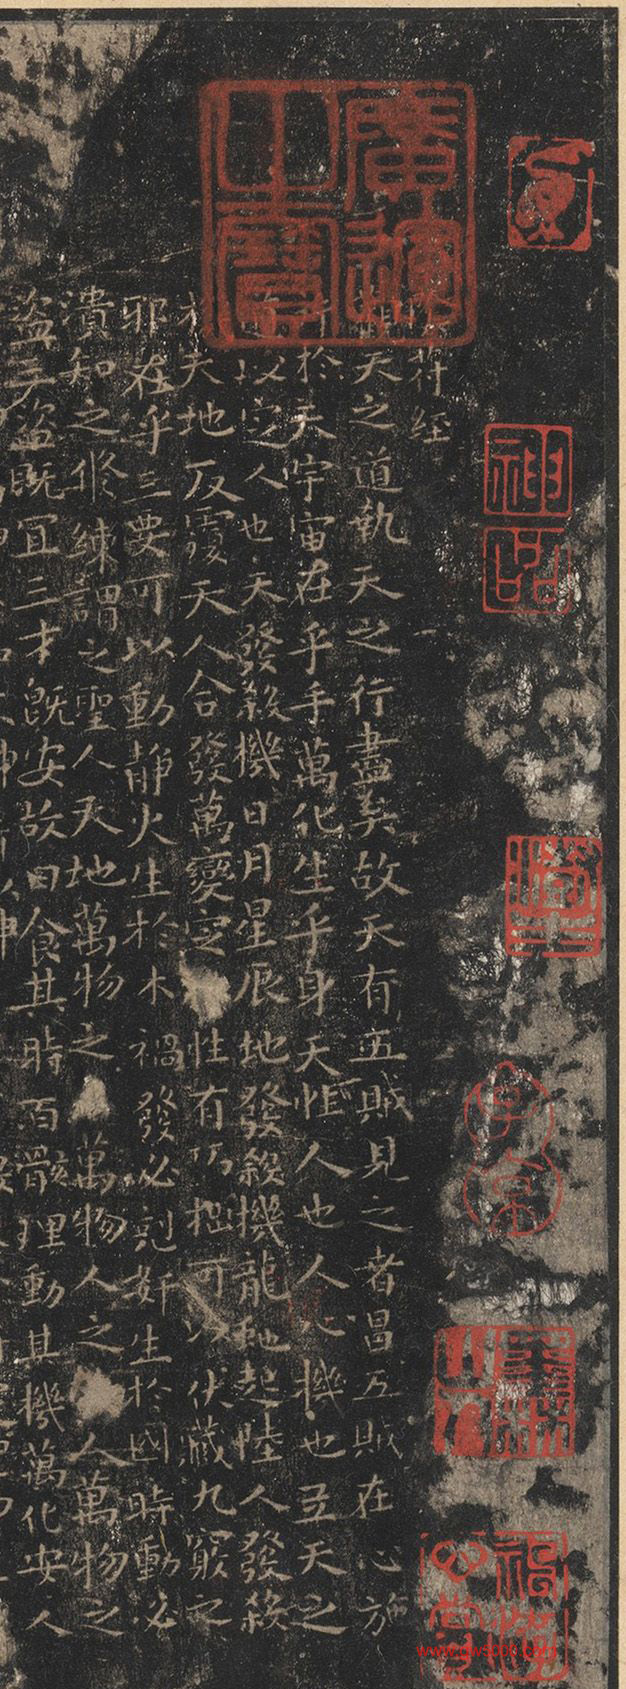 廣運之寶
神品
符經
天之道執天之行盡矣故天有五賊見之者昌五賊在心施
於天宇宙在乎手萬化生乎身天性人也人心機也立天之
以定人也天發殺機日月星辰地發殺機龍虵起陸人發殺
機天地反覆天人合發萬變定性有巧拙可以伏藏九竅之
邪在乎三要可以動靜火生於木禍發必剋姧生於國時動必
潰知之修練謂之聖人天地萬物之萬物人之人萬物之
盜三盜既冝三才既安故曰食其時百骸理動其機萬化安人